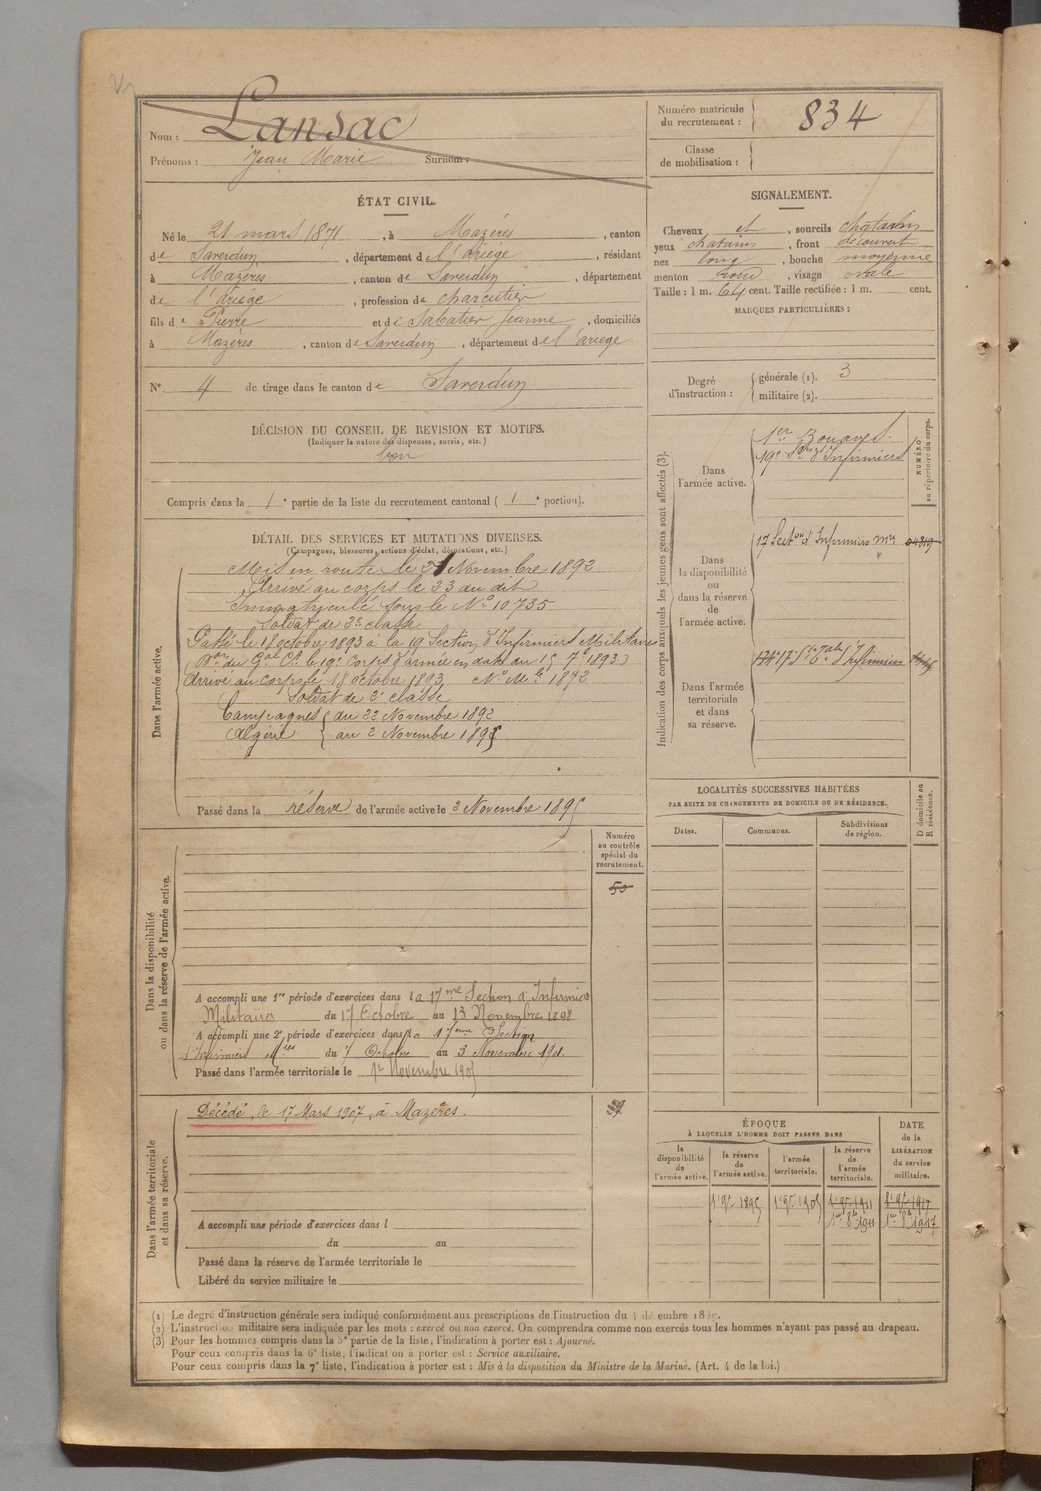 Nom : Lansac
Prénoms : Jean Marie Surnom :
Numéro matricule
du recrutement : 834
Classe
de mobilisation :
ÉTAT CIVIL.
Né le 21 mars 1871, à Mazères, canton
de Saverdun, département de l'Ariège, résidant
à Mazères, canton de Saverdun, département
de l'Ariège, profession de charcutier
fils de Pierre et de Sabatier Jeanne, domiciliés
à Mazères, canton de Saverdun, département de l'ariège
N° 4 de tirage dans le canton de Saverdun
SIGNALEMENT.
Cheveux et, sourcils chatains
yeux chatains, front découvert
nez long, bouche moyenne
menton rond, visage ovale
Taille : 1 m. 64 cent. Taille rectifiée : 1 m. cent.
MARQUES PARTICULIÈRES :
Degré
d'instruction :
générale (1). 3
militaire (2).
DÉCISION DU CONSEIL DE REVISION ET MOTIFS.
(Indiquer la nature des dispenses, sursis, etc.)
bon
Compris dans la 1e partie de la liste du recrutement cantonal ( 1e portion).
DÉTAIL DES SERVICES ET MUTATIONS DIVERSES.
(Campagnes, blessures, actions d'éclat, décorations, etc.)
Dans l'armée active.
Mis en route le 21 Novembre 1892
Arrivé au corps le 23 au dit
Immatriculé sous le N° 10735
Soldat de 2e classe
Passé le 18 octobre 1893 à la 19 Section d'Infirmiers Militaires
du Gal Ct le 19e Corps d'armée en date du 15 7e 1893)
Arrivé au corps le 18 octobre 1893, N° Mle 1872
Soldat de 2e classe
Campagnes du 22 Novembre 1892
Algérie au 2 Novembre 1895
Passé dans la réserve de l'armée active le 2 Novembre 1895
Indication des corps auxquels les jeunes gens sont affectés (3).
NUMÉRO
au répertoire du corps.
Dans
l'armée active.
1er Zouaves.
19e Son d'Infirmiers
Dans
la disponibilité
ou
dans la réserve
de
l'armée active.
17 Section d'Infirmiers Mres
Dans l'armée
territoriale
et dans
sa réserve.
17e Son Tale d'Infirmiers
LOCALITÉS SUCCESSIVES HABITÉES
PAR SUITE DE CHANGEMENTS DE DOMICILE OU DE RÉSIDENCE.
D domicile ou
R résidence.
Dates. Communes. Subdivisions
de région.
Dans la disponibilité
ou dans la réserve de l'armée active.
Numéro
au contrôle
spécial du
recrutement.
50
A accompli une 1re période d'exercices dans la 17me Section d'Infirmiers
Militaires du 17 Octobre au 13 Novembre 1898
A accompli une 2e période d'exercices dans la 17eme Section
d'Infirmiers Mres du 7 Octobre au 3 Novembre 1901.
Passé dans l'armée territoriale le 1er Novembre 1905
Dans l'armée territoriale
et dans sa réserve.
Décédé, le 17 Mars 1907, à Mazères.
A accompli une période d'exercices dans l
du au
Passé dans la réserve de l'armée territoriale le
Libéré du service militaire le
ÉPOQUE
À LAQUELLE L'HOMME DOIT PASSER DANS
DATE
de la
LIBÉRATION
du service
militaire.
la
disponibilité
de
l'armée active.
la réserve
de
l'armée active.
l'armée
territoriale.
la réserve
de
l'armée
territoriale.
1er 9e 1895 1er 9e 1905 1er 9e 1911 1er 9e 1917
1er 8e 1911 1er 8e 1917
(1) Le degré d'instruction générale sera indiqué conformément aux prescriptions de l'instruction du
(2) L'instruction militaire sera indiquée par les mots : exercé ou non exercé. On comprendra comme non exercés tous les hommes n'ayant pas passé au drapeau.
(3) Pour les hommes compris dans la 5e partie de la liste, l'indication à porter est : Ajourné.
Pour ceux compris dans la 6e liste, l'indication à porter est : Service auxiliaire.
Pour ceux compris dans la 7e liste, l'indication à porter est : Mis à la disposition du Ministre de la Marine. (Art. 4 de la loi.)